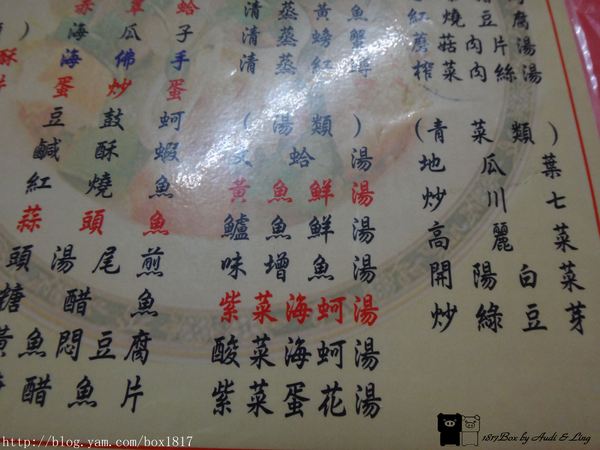 海瓜子
海佛手
蛋炒蛋
豆鼓蚵
鹹酥蝦
紅燒魚
蒜頭魚
頭湯尾煎
糖醋魚
黃魚悶豆腐
醋魚片
清蒸黃魚
清蒸螃蟹
清蒸紅蟳
(湯類)
文蛤湯
黃魚鮮湯
鱸魚鮮湯
味增魚湯
紫菜海蚵湯
酸菜海蚵湯
紫菜蛋花湯
紅燒豆腐
蘑菇肉片湯
榨菜肉絲湯
(青菜類)
地瓜葉
炒川七
高麗菜
開陽白菜
炒綠豆芽
http://blog.yam.com/box1817
1817Box by Audi & Ling